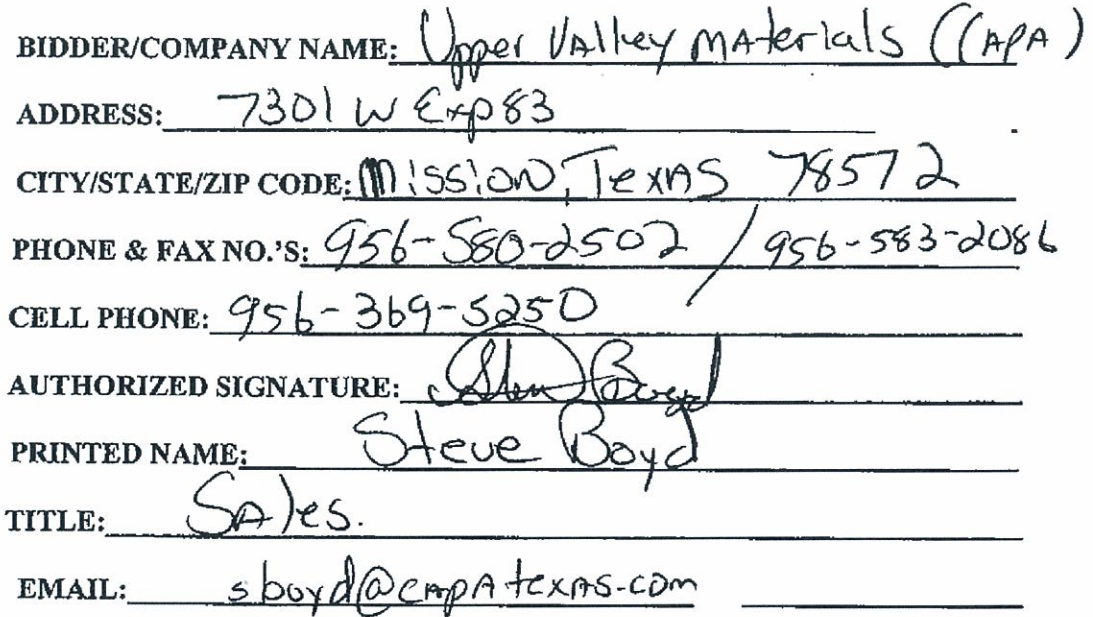 BIDDER/COMPANY NAME: Upper Valley Materials (CAPA)
ADDRESS: 7301 W Exp 83
CITY/STATE/ZIP CODE: Mission, Texas 78572
PHONE & FAX NO.'S: 956-580-2502 / 956-583-2086
CELL PHONE: 956-369-5250
AUTHORIZED SIGNATURE: Steve Boyd
PRINTED NAME: Steve Boyd
TITLE: Sales.
EMAIL: sboyd@capatexas.com